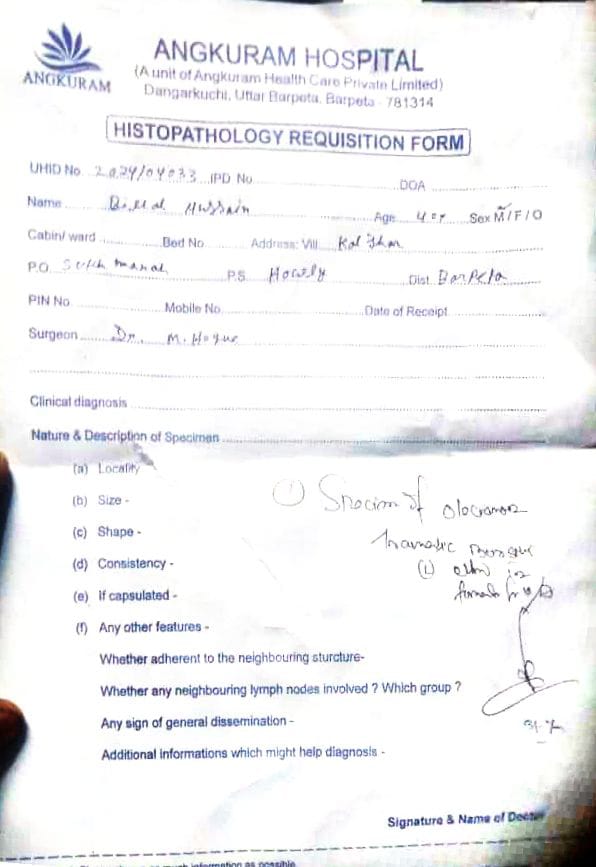 ANGKURAM
ANGKURAM HOSPITAL
(A unit of Angkuram Health Care Private Limited)
Dangarkuchi, Uttar Barpeta, Barpeta - 781314
HISTOPATHOLOGY REQUISITION FORM
UHID No. 2024/04033 IPD No. DOA
Name Hussain Age 40 Sex M/F/O
Cabin/ ward Bed No. Address: Vill
P.O. P.S. Howly Dist. Barpeta
PIN No. Mobile No. Date of Receipt
Surgeon Dr. M. Hoque
Clinical diagnosis
Nature & Description of Specimen
(a) Locality
(b) Size -
① Specimen of olecranon
(c) Shape -
(d) Consistency -
(L)
(e) If capsulated -
(f) Any other features -
Whether adherent to the neighbouring sturcture-
Whether any neighbouring lymph nodes involved ? Which group ?
Any sign of general dissemination -
Additional informations which might help diagnosis -
Signature & Name of Doctor
information as possible